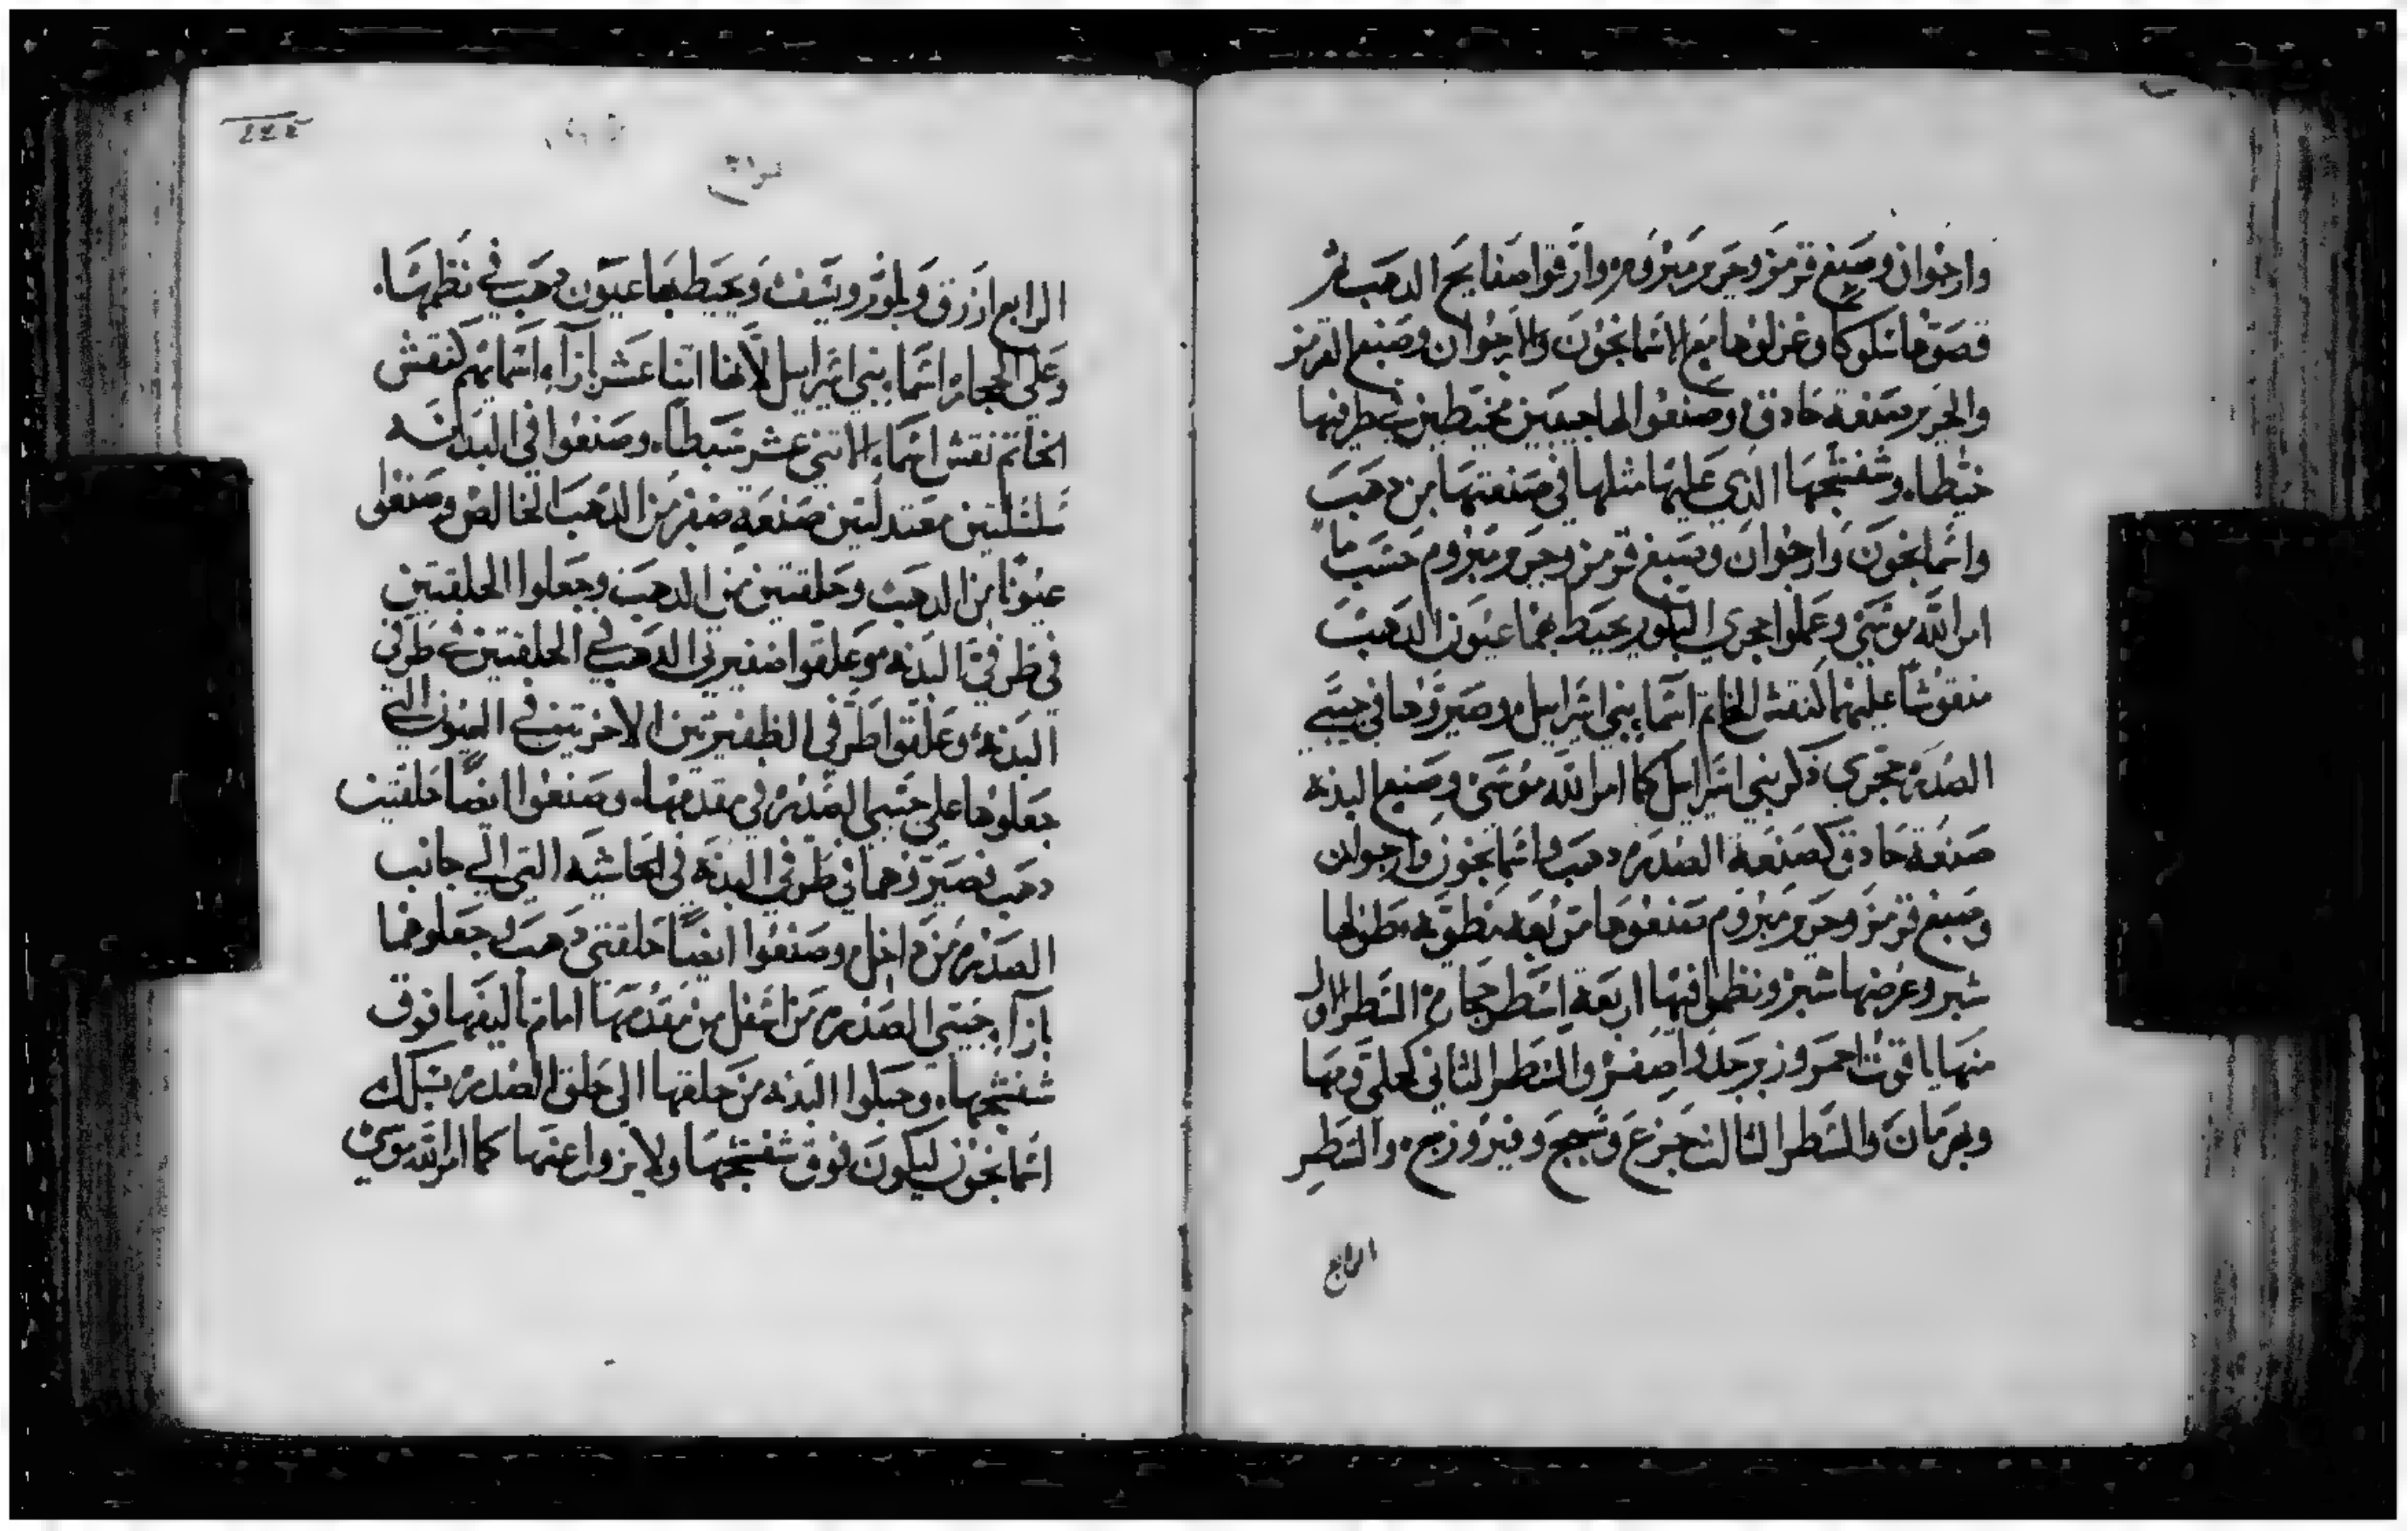 وارجوان وصبغ قرمز وحرير مبزوم وارقوا صفايح الدهب ثم
قصوها سلوكا وغزلوها مع الاسمانجون والارجوان وصبغ القرمز
والحرير صنعة حادق وصنعوا لها جيبين مخيطين في طرفيها
خيطا وشفشجها الذي عليها مثلها في صنعتها من دهب
واسمانجون وارجوان وصبغ قرمز وحرير مبزوم حسب ما
امر الله موسى وعملوا حجري البلور يحيط بهما عيون الدهب
منقوشا عليهما كنقش الخاتم اسما بني اسراييل وصيروها في جيبي
الصدره حجري ذكر بني اسراييل كما امر الله موسى وصنع البدنه
صنعة حادق كصنعة الصدره دهب واسمانجون وارجوان
وصبغ قرمز وحرير مبزوم صنعوها مربعه مطويه طولها
شبر وعرضها شبر ونظموا فيها اربعة اسطر حجاره السطر الاول
منها ياقوت احمر وزبرجد اصفر والسطر الثاني كحلي ومها
وبهرمان والسطر الثالث جزع وسبج وفيروزج والسطر
الرابع
الرابع ازرق وبلور ويشف ويحيط بها عيون دهب في نظمها
وعلى الحجاره اسما بني اسراييل لانها اثنا عشر ازآء اسمايهم كنقش
الخاتم نقش اسماء الاتني عشر سبطا وصنعوا في البدنه
سلسلتين معتدلتين صنعة ضفر من الدهب الخالص وصنعوا
عيونا من الدهب وحلقتين من الدهب وجعلوا الحلقتين
في طرفي البدنه وعلقوا ضفيرتي الدهب في الحلقتين في طرفي
البدنه وعلقوا طرفي الظفيرتين الاخرتين في العيون التي
جعلوها على جيبي الصدره في مقدمها وصنعوا ايضا حلقتين
دهب فصيروهما في طرفي البدنه في الحاشيه التي الي جانب
الصدره من داخل وصنعوا ايضا حلقتي دهب وجعلوهما
بازآ جيبتي الصدره من اسفل من مقدمها امام تاليفها فوق
شفشجها وحبلوا البدنه من حلقها الى حلق الصدره بسلك
اسمانجون ليكون فوق شفشجها ولا يزول عنها كما امر الله موسى